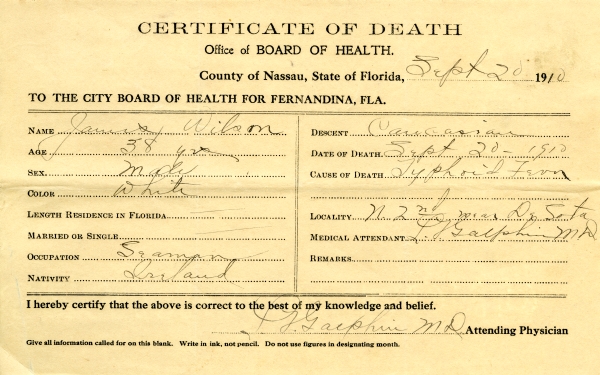 CERTIFICATE OF DEATH
Office of BOARD OF HEALTH.
County of Nassau, State of Florida, Sept 20 1910
TO THE CITY BOARD OF HEALTH FOR FERNANDINA, FLA.
NAME James Wilson
AGE 38 yrs
SEX. Male
COLOR White
LENGTH RESIDENCE IN FLORIDA
MARRIED OR SINGLE
OCCUPATION Seaman
NATIVITY Ireland
DESCENT Caucasian
DATE OF DEATH Sept 20 - 1910
CAUSE OF DEATH Typhoid Fever
LOCALITY N. 2nd near De Sota
MEDICAL ATTENDANT. Galphin MD
REMARKS
I hereby certify that the above is correct to the best of my knowledge and belief.
Galphin M.D. Attending Physician
Give all information called for on this blank. Write in ink, not pencil. Do not use figures in designating month.